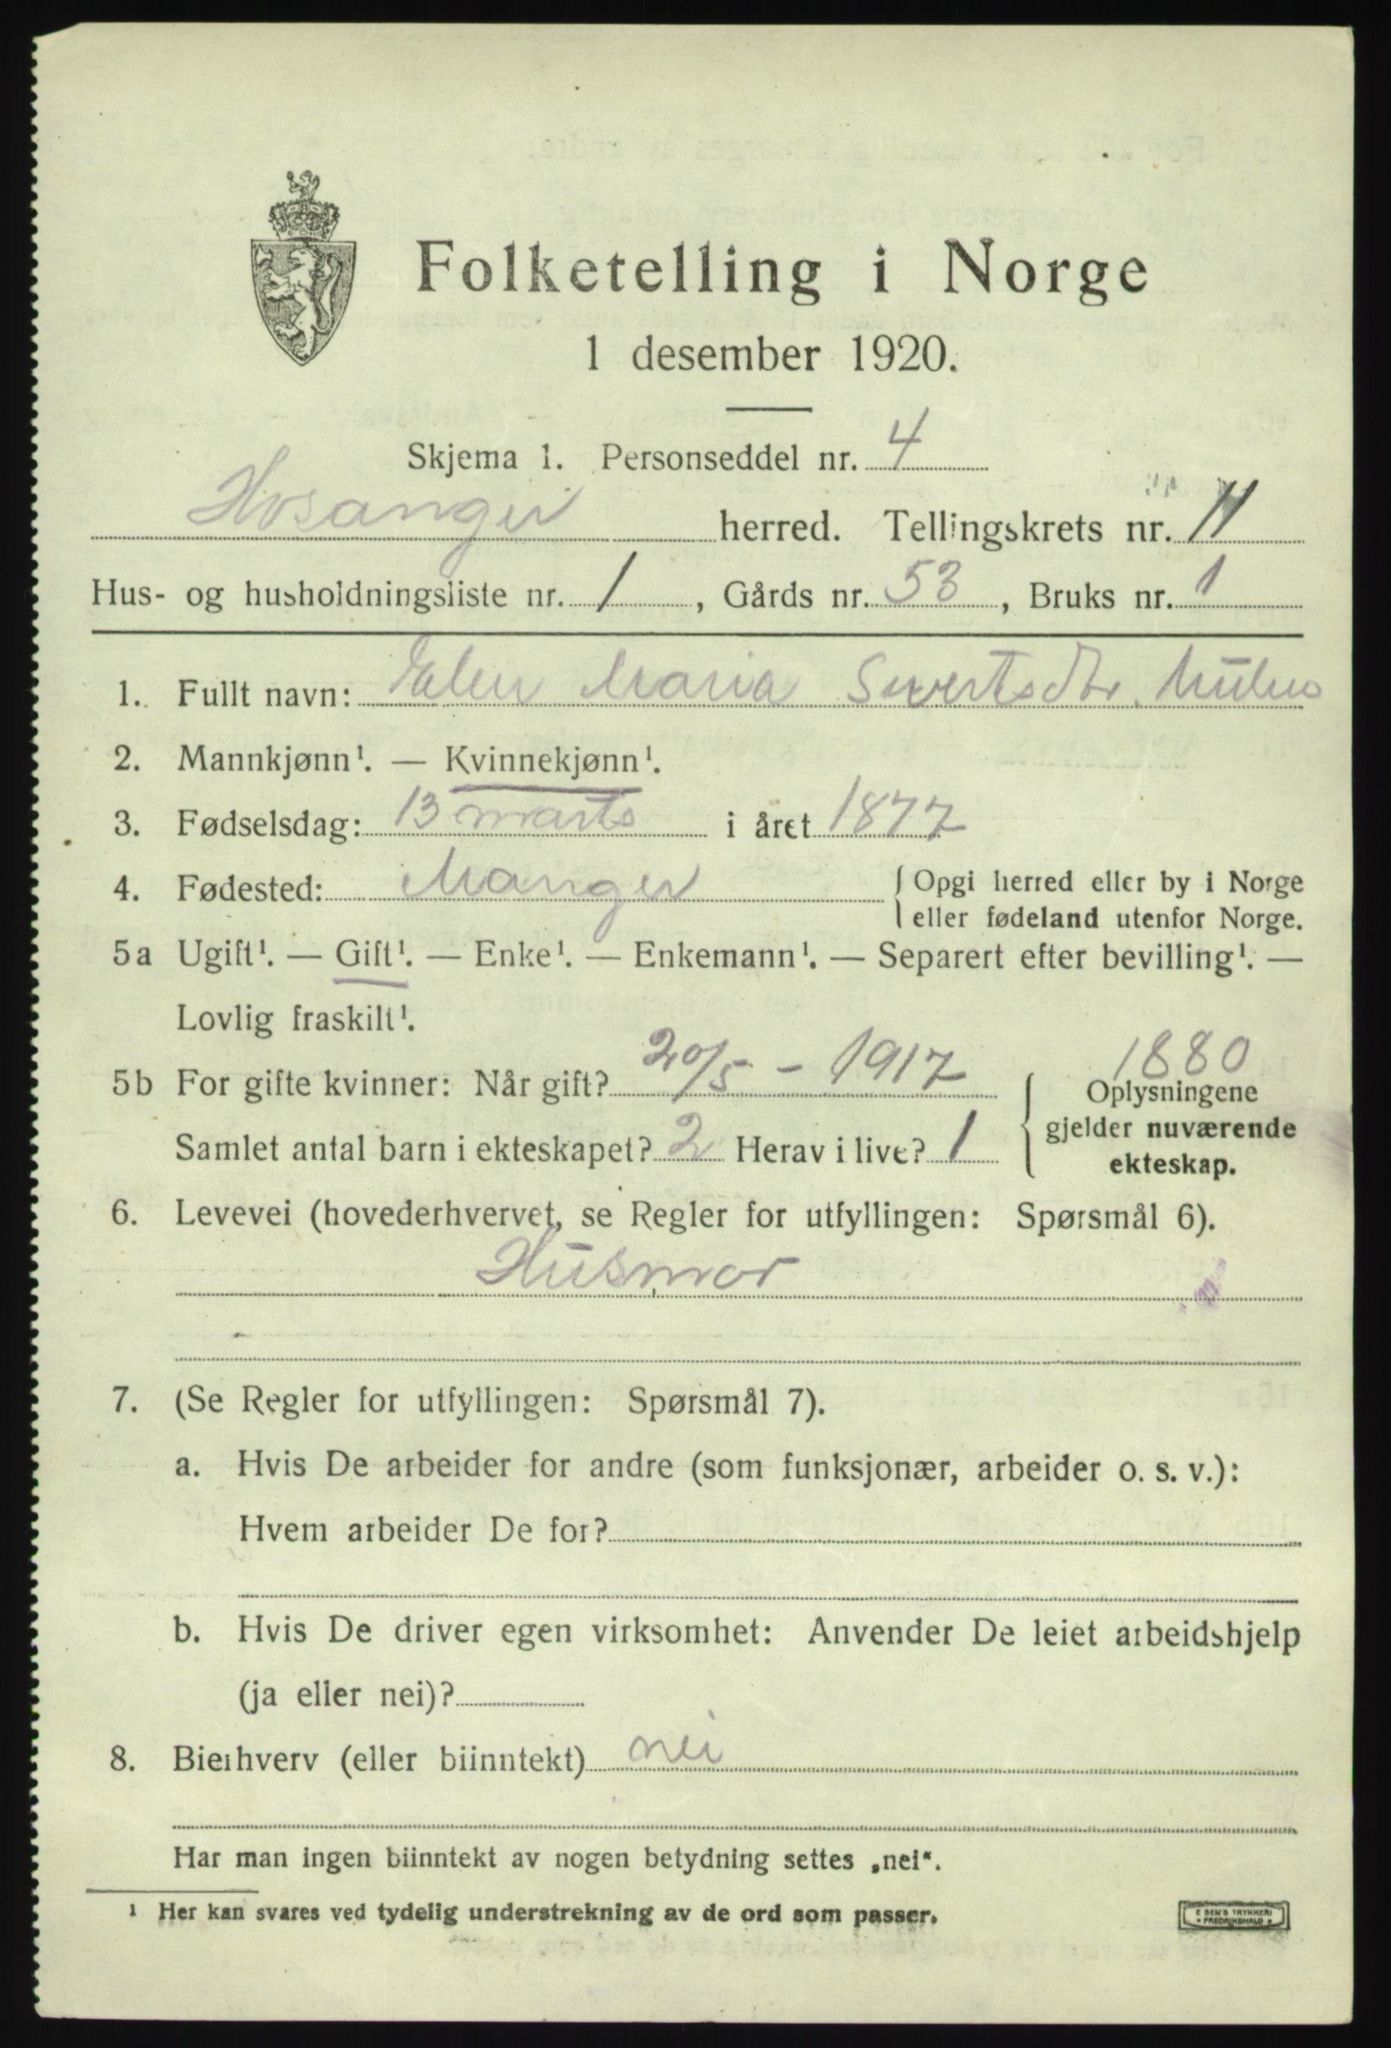 Folketelling i Norge
1 desember 1920.
Skjema 1. Personseddel nr. 4
Hosanger herred. Tellingskrets nr. 11
Hus- og husholdningsliste nr. 1, Gårds nr. 53, Bruks nr. 1
1. Fullt navn: Elen Maria Sivertsdtr.
2. Mannkjønn¹. — Kvinnekjønn¹.
3. Fødselsdag: 13 marts i året 1877
4. Fødested: Manger { Opgi herred eller by i Norge
eller fødeland utenfor Norge.
5a Ugift¹. — Gift¹. — Enke¹. — Enkemann¹. — Separert efter bevilling¹. —
Lovlig fraskilt¹.
1880
5b For gifte kvinner: Når gift? 20/5 - 1917 { Oplysningene
gjelder nuværende
Samlet antal barn i ekteskapet? 2 Herav i live? 1
ekteskap.
6. Levevei (hovederhvervet, se Regler for utfyllingen: Spørsmål 6).
Husmor
7. (Se Regler for utfyllingen: Spørsmål 7).
a. Hvis De arbeider for andre (som funksjonær, arbeider o. s. v.):
Hvem arbeider De for?
b. Hvis De driver egen virksomhet: Anvender De leiet arbeidshjelp
(ja eller nei)?
8. Bierhverv (eller biinntekt) nei
Har man ingen biinntekt av nogen betydning settes „nei“.
¹ Her kan svares ved tydelig understrekning av de ord som passer.
E SEM'S TRYKKERI
FREDRIKSHALD